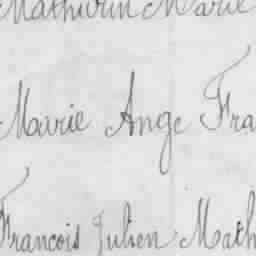 Mathurin Marie
Marie Ange Fra
Francois Julien Math